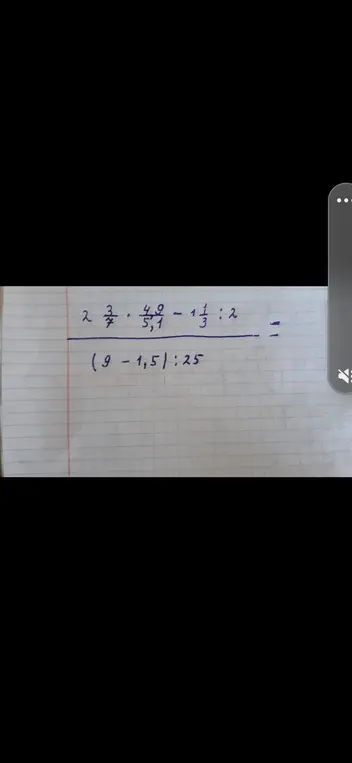 2 3/7 · 4,9/5,1 - 1 1/3 : 2
(9 - 1,5) : 25 =